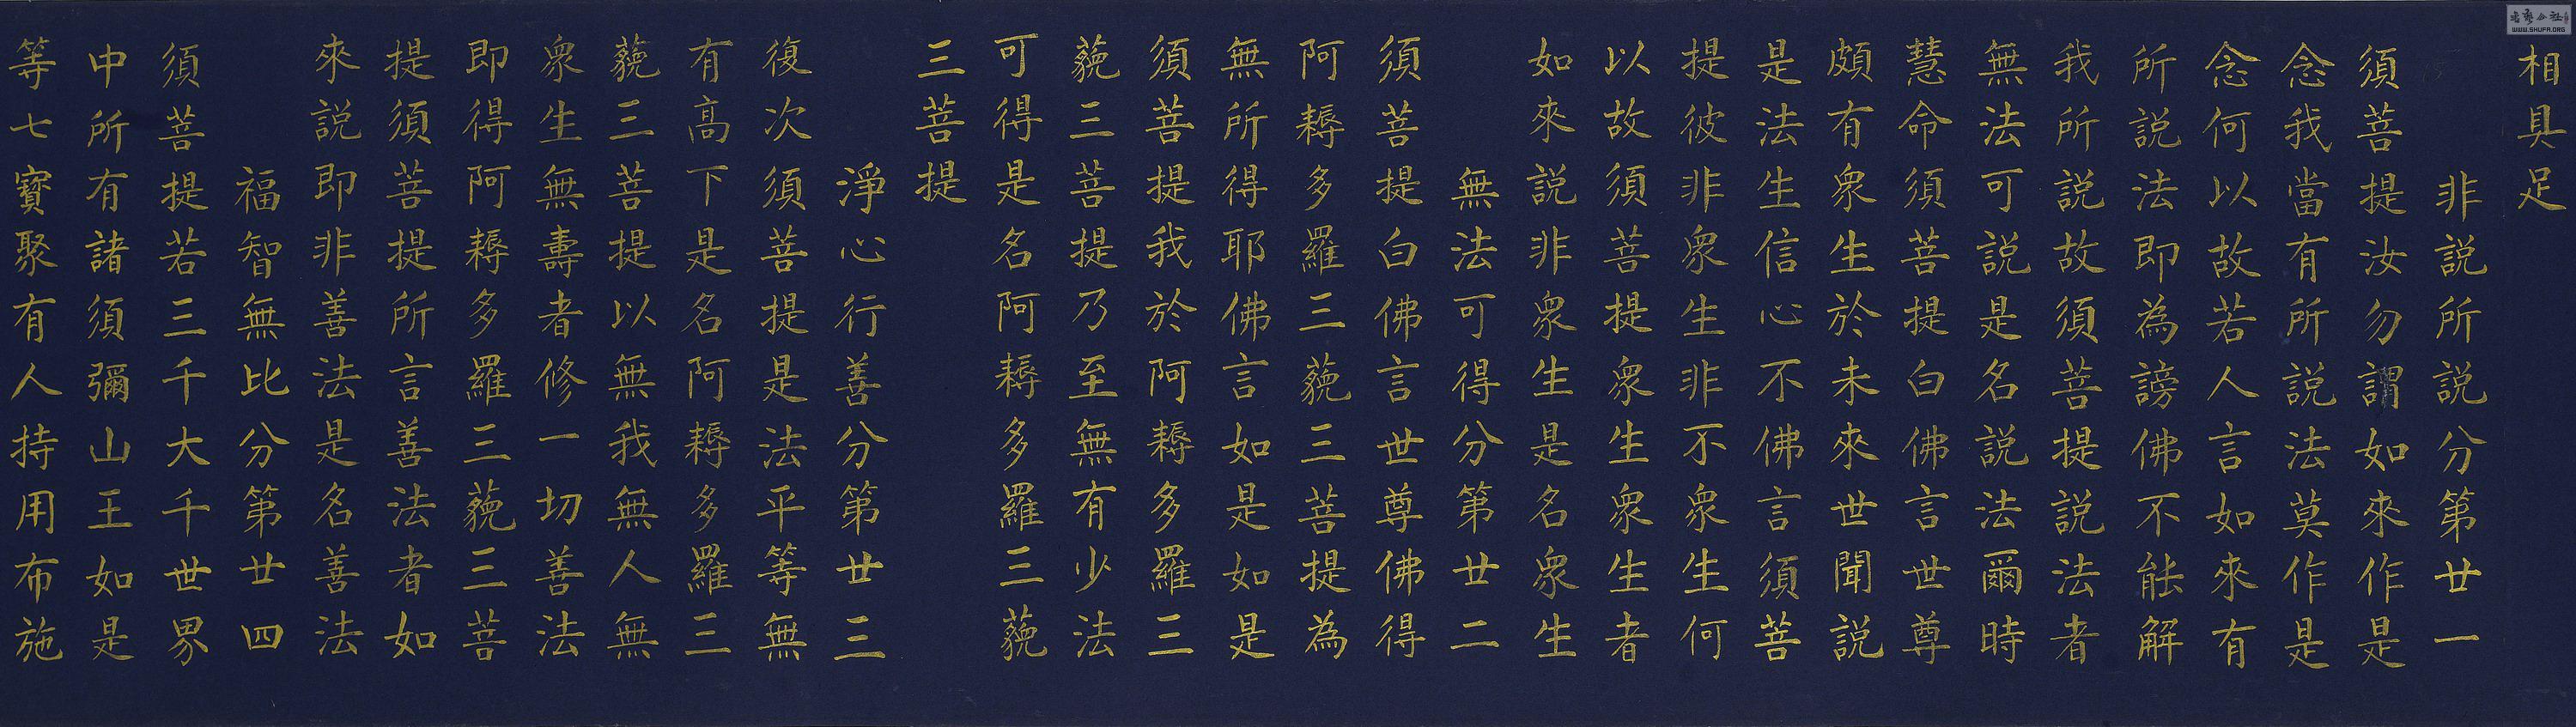 相具足
非說所說分第廿一
須菩提汝勿謂如來作是
念我當有所說法莫作是
念何以故若人言如來有
所說法即為謗佛不能解
我所說故須菩提說法者
無法可說是名說法爾時
慧命須菩提白佛言世尊
頗有衆生於未來世聞說
是法生信心不佛言須菩
提彼非衆生非不衆生何
以故須菩提衆生衆生者
如來說非衆生是名衆生
無法可得分第廿二
須菩提白佛言世尊佛得
阿耨多羅三藐三菩提為
無所得耶佛言如是如是
須菩提我於阿耨多羅三
藐三菩提乃至無有少法
可得是名阿耨多羅三藐
三菩提
淨心行善分第廿三
復次須菩提是法平等無
有高下是名阿耨多羅三
藐三菩提以無我無人無
衆生無壽者修一切善法
即得阿耨多羅三藐三菩
提須菩提所言善法者如
來說即非善法是名善法
福智無比分第廿四
須菩提若三千大千世界
中所有諸須彌山王如是
等七寶聚有人持用布施
WWW.SHUFA.ORG